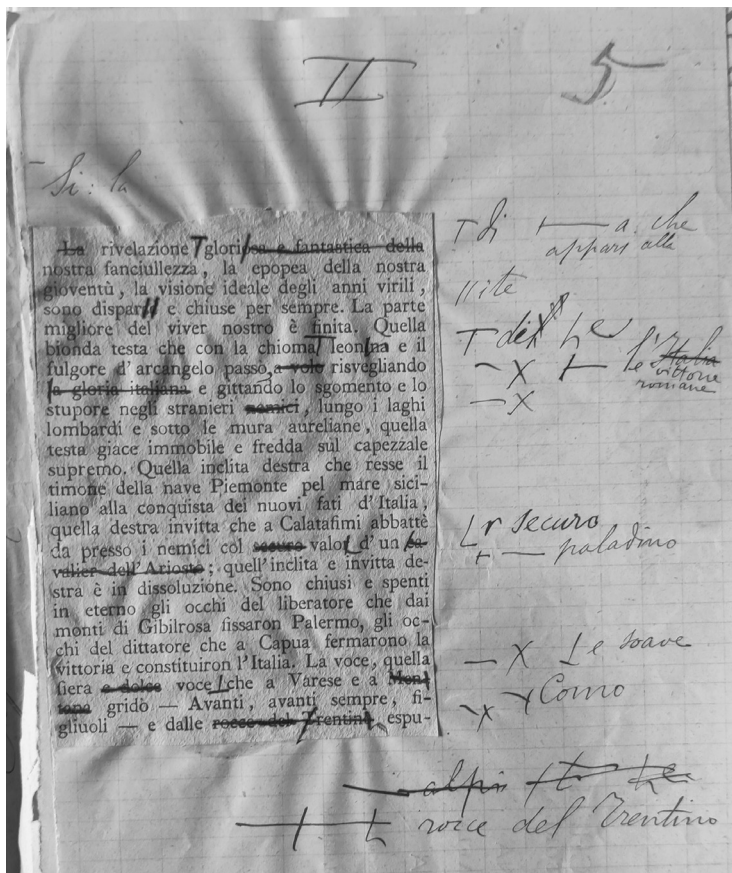 II 5
Si: la
La rivelazione gloriosa e fantastica della
nostra fanciullezza, la epopea della nostra
gioventù, la visione ideale degli anni virili,
sono disparII e chiuse per sempre. La parte
migliore del viver nostro è finita. Quella
bionda testa che con la chioma leonina e il
fulgore d'arcangelo passò, a volo risvegliando
la gloria italiana e gittando lo sgomento e lo
stupore negli stranieri nemici, lungo i laghi
lombardi e sotto le mura aureliane, quella
testa giace immobile e fredda sul capezzale
supremo. Quella inclita destra che resse il
timone della nave Piemonte pel mare sici-
liano alla conquista dei nuovi fati d'Italia,
quella destra invitta che a Calatafimi abbattè
da presso i nemici col securo valor d'un ca-
valier dell'Ariosto; quell'inclita e invitta de-
stra è in dissoluzione. Sono chiusi e spenti
in eterno gli occhi del liberatore che dai
monti di Gibilrosa fissaron Palermo, gli oc-
chi del dittatore che a Capua fermarono la
vittoria e constituiron l'Italia. La voce, quella
fiera e dolce voce che a Varese e a Men-
tana gridò — Avanti, avanti sempre, fi-
gliuoli — e dalle rocce del Trentino, espu-
T di a. che
appars alla
ite
T dei e
X le l'Italia
vittorie
romane
X
r securo
paladino
X e soave
X Como
alpi
rocce del Trentino